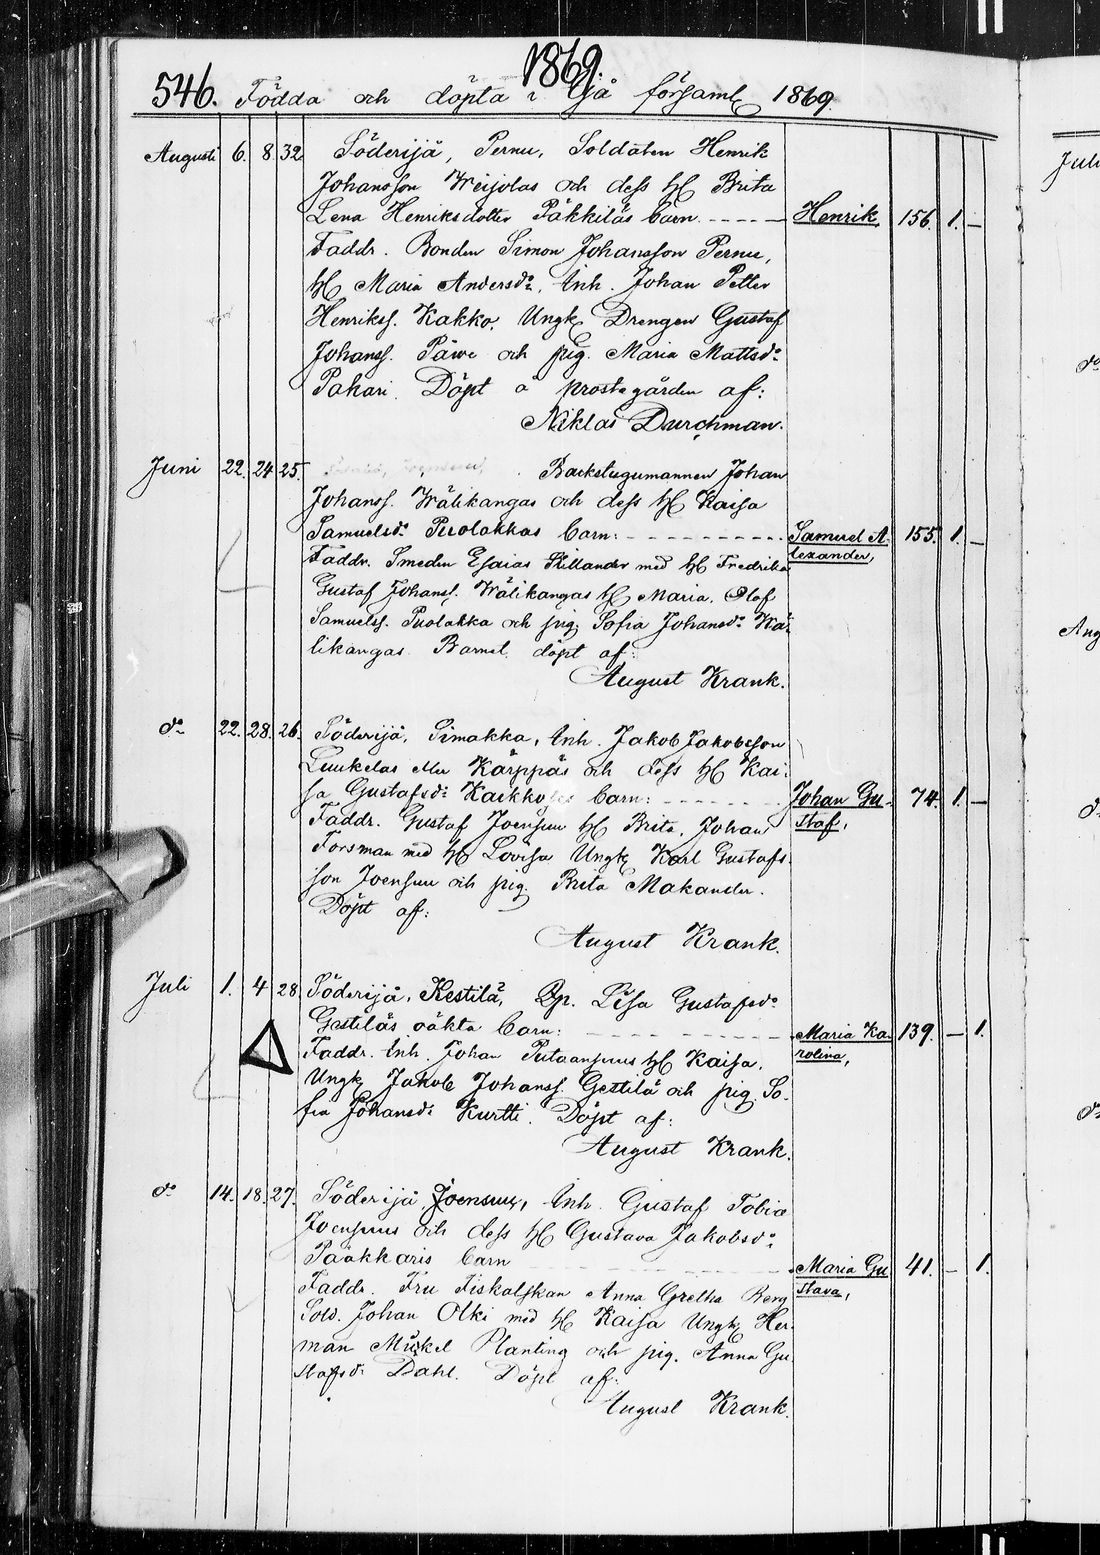 1869.
546. Födda och döpta i Ijå församl 1869.
Augusti 6. 8. 32 Söderijå, Pernu, Soldaten Henrik
Johansson Weijolas och dess H. Brita
Lena Henriksdotter Päkkiläs barn. Henrik 156. 1. —
Faddr. Bonden Simon Johansson Pernu,
H. Maria Andersdr. Inh. Johan Petter
Henrikss. Kakko, Ungk. Drengen Gustaf
Johanss. Päwe och pig. Maria Mattsdr
Pakari. Döpt å prostegården af:
Niklas Durchman.
Juni 22. 24. 25. Backstugumannen Johan
Johanss. Wälikangas och dess H. Kaisa
Samuelsdr Puolakkas barn: Samuel A- 155. 1. —
lexander,
Faddr. Smeden Esaias Killander med H. Fredrika
Gustaf Johanss. Wälikangas H. Maria. Olof
Samuelss. Puolakka och pig. Sofia Johansdr Wä-
likangas. Barnet döpt af:
August Krank.
do 22. 28. 26. Söderijå, Simakka, Inh. Jakob Jakobsson
Luukelas eller Kärppäs och dess H. Kai-
sa Gustafsdr Kaikkoses barn: Johan Gu- 74. 1. —
staf,
Faddr. Gustaf Joensuu H. Brita. Johan
Forsman med H. Lovisa Ungk. Karl Gustafs-
son Joensuu och pig. Brita Makander.
Döpt af:
August Krank.
Juli 1. 4. 28. Söderijå, Kestilä, Qp. Lisa Gustafsdr
Gestiläs oäkta barn: Maria Ka- 139. — 1.
rolina,
Faddr. Inh. Johan Putaansuus H. Kaisa.
Ungk. Jakob Johanss. Gestilä och pig. So-
fia Johansdr Kurtti. Döpt af:
August Krank.
do 14. 18. 27. Söderijå Joensuu, Inh. Gustaf Tobias
Joensuus och dess H. Gustava Jakobsdr
Pääkkäris barn Maria Gu 41. — 1.
stava,
Faddr. Fru Fiskalskan Anna Gretha Berg
Sold. Johan Olki med H. Kaisa Ungk. Her-
man Mikel Planting och pig. Anna Gu-
stafsdr Dahl. Döpt af:
August Krank.